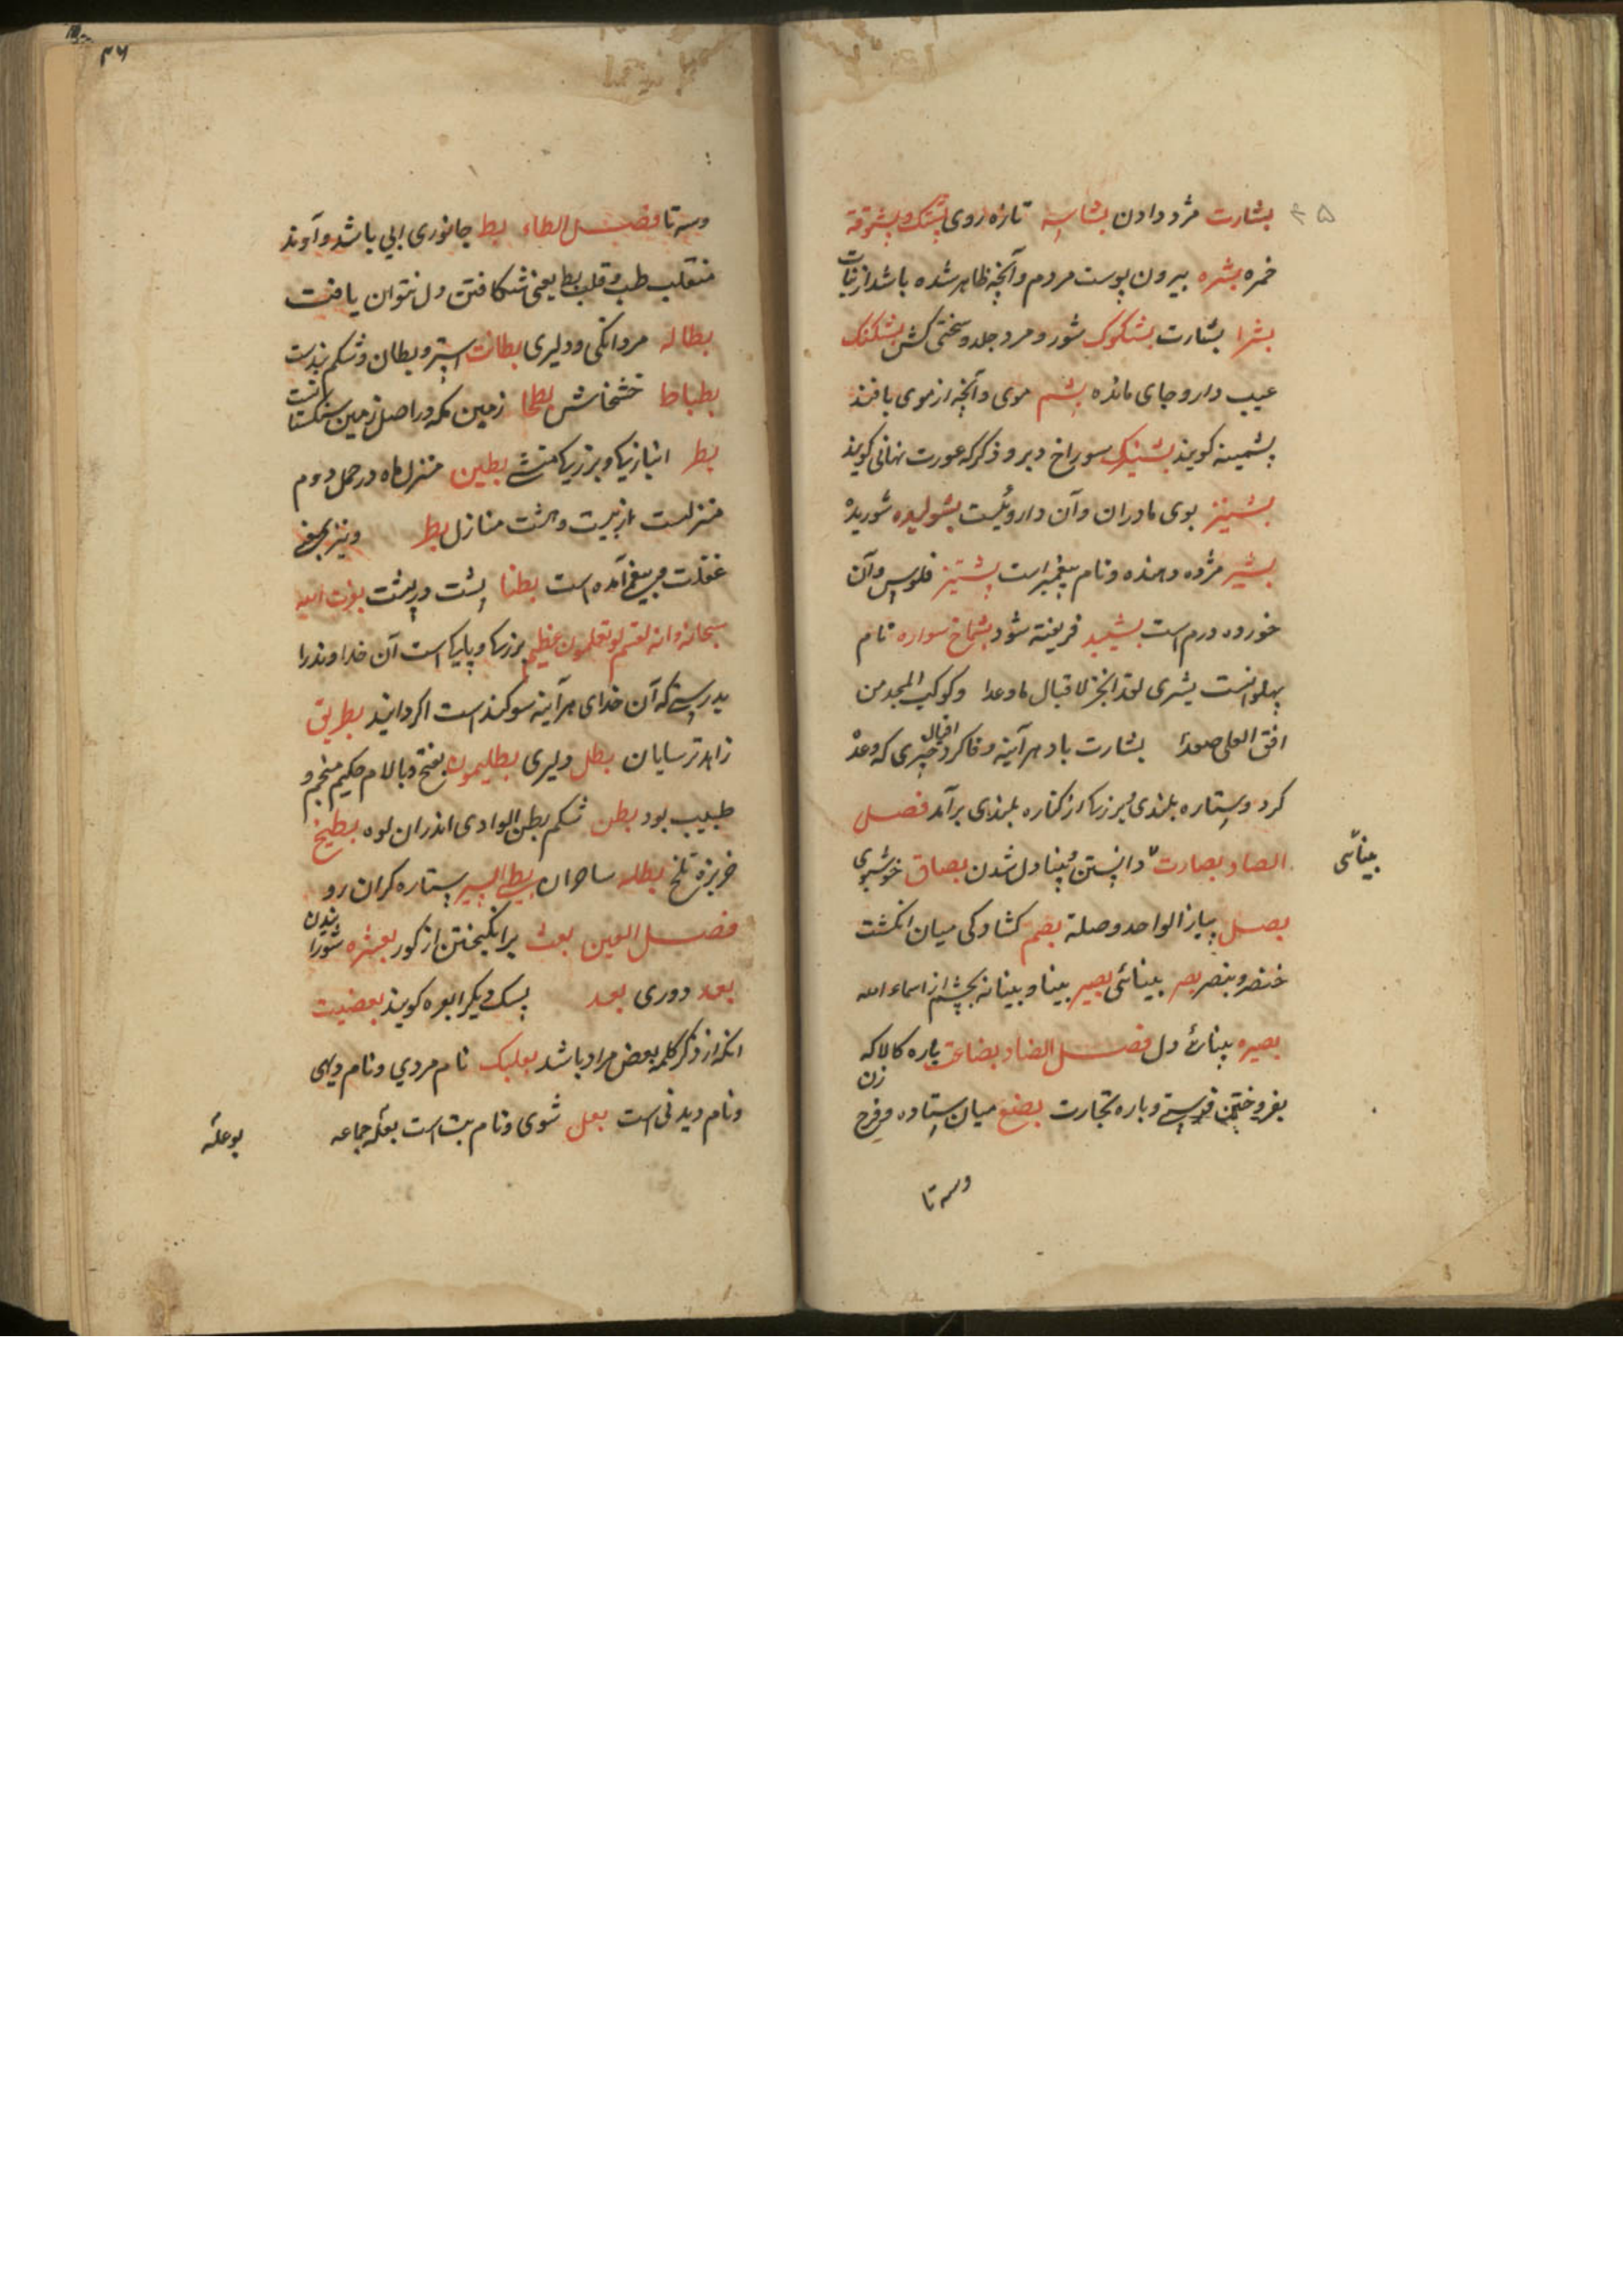 ۴۵
بشارت مژد دادن بشاسه تازه روی بشتک و بشوقه
خمره بشره بیرون پوست مردم و آنچه ظاهر شده باشد از نبات
بشرا بشارت بشکوک شور و مرد جلد و سختی کش بشکنک
عیب دار و جای مانده بشم موی و آنچه از موی بافند
پشمینه کویند بشنیک سوراخ دبر و ذکر که عورت نهانی کویند
بشنیز بوی مادران و آن داروئیست بشولیده شوریده
بشیر مژده دهنده و نام پیغمبر است پشتیز فلوس و آن
خورده درم است بشیبد فریفته شود بشماخ سواره نام
پهلوانست بشری لقد انجز الاقبال ما وعدا و کوکب المجد من
افق العلی صعدا بشارت باد هر آینه وفا کرد اقبال چیزی که وعده
کرد و ستاره بلندی و بزرکی از کناره بلندی برآمد فصل
الصاد بصارت دانستن و بینا دل شدن بصاق خوشبوی
بینائی
بصل پیاز الواحد وصلة بصم کشادکی میان انکشت
خنصر و بنصر بصر بینائی بصیر بینا و بینا نه بچشم از اسماء الله
بصیره بینائ دل فصل الضاد بضاعت پاره کالا که
بفروختن فرستی و پاره تجارت بضع میان ستاده و فرج زن
وسه تا
۴۶
وسه تا فصل الطاء بط جانوری ابی باشد و آوند
منقلب طب و قلب بط یعنی شکافتن دل نتوان یافت
بطاله مردانکی و دلیری بطانت استر و بطان و شکم بندست
بطباط خشخاش بطحا زمین مکه و در اصل زمین سنکستانست
بطر انبازیها و بزرکیها منشی بطین منزل ماه در حمل دوم
منزلست از بیست و هشت منازل بطر و نیز بمعنی
غفلت و بیغمی آمده است بطنا پشت در پشت بعزت الله
سبحانه و انه لقسم لو تعلمون عظیم بزرکی و پاکی است آن خداوند را
بدرستی که آن خدای هر آینه سوکند است اکر دانید بطریق
زاهد ترسایان بطل دلیری بطلیموس بفتح و بالام حکیم منجم و
طبیب بود بطن شکم بطن الوادی اندران لوه بطیخ
خربزه تلخ بطله ساحران بطی السیر ستاره کران رو
فصل العین بعث برانکیختن از کور بعثره شورانیدن
بعد دوری بعد پسک دیکر ابعره کویند بعضیت
انکه از ذکر کلمه بعض مراد باشد بعلبک نام مردی و نام دیهی
و نام دیدنی است بعل شوی و نام بت است بعله جماعه
بوعله